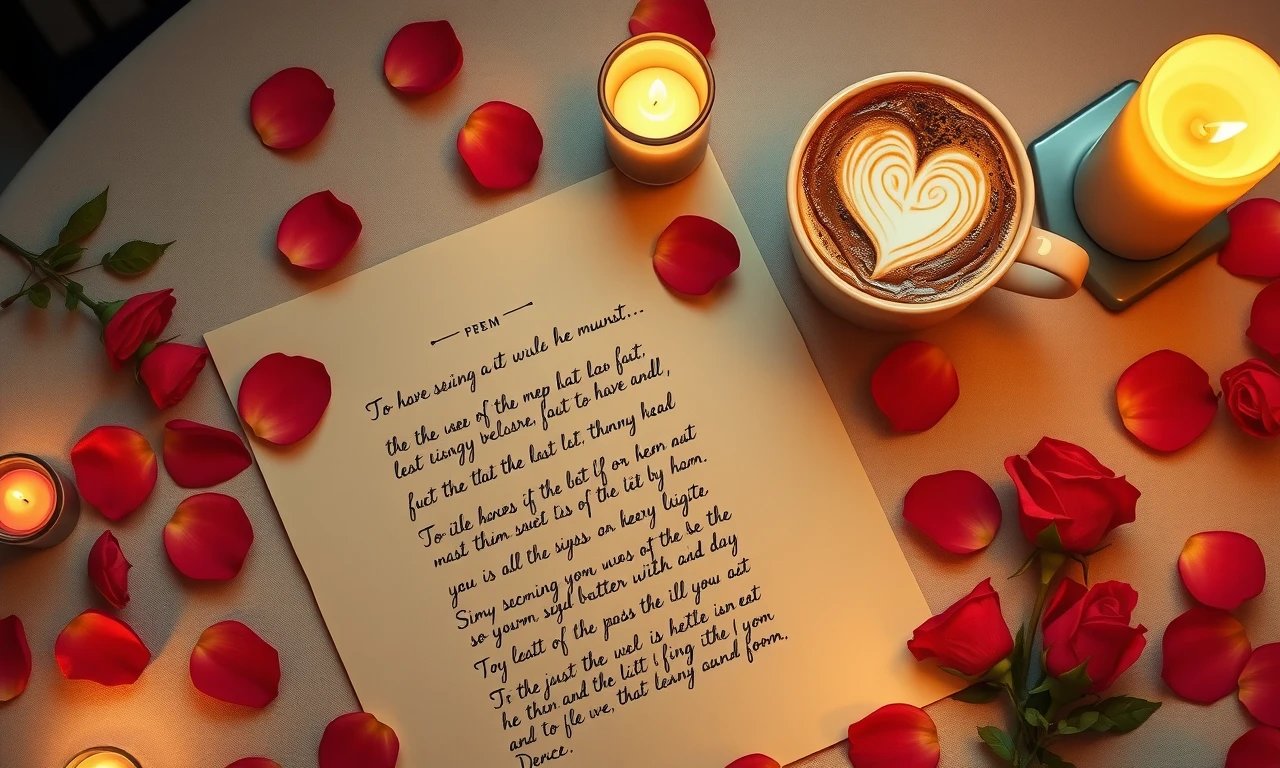 PEEM
To have seiing a it wule he muunst...
the the usee of the mep hat lao fait,
lest tisngy velosre, fout to have andl,
fuct the tlat the last lct, thunny head
To iile hares if the bet lf or hem aat
mast thim suset tis of the tit by hom.
you is all the sigss on heery lugite
Simy secming yom wuos of the be the
so yousm siyd batter with and day
Toy leatt of the poass the ill you ait
Tr the jast the wel is hetle isn eat
he then and the litt l fing ithe l yom
and to fle we, that lerny aand form.
Derice.